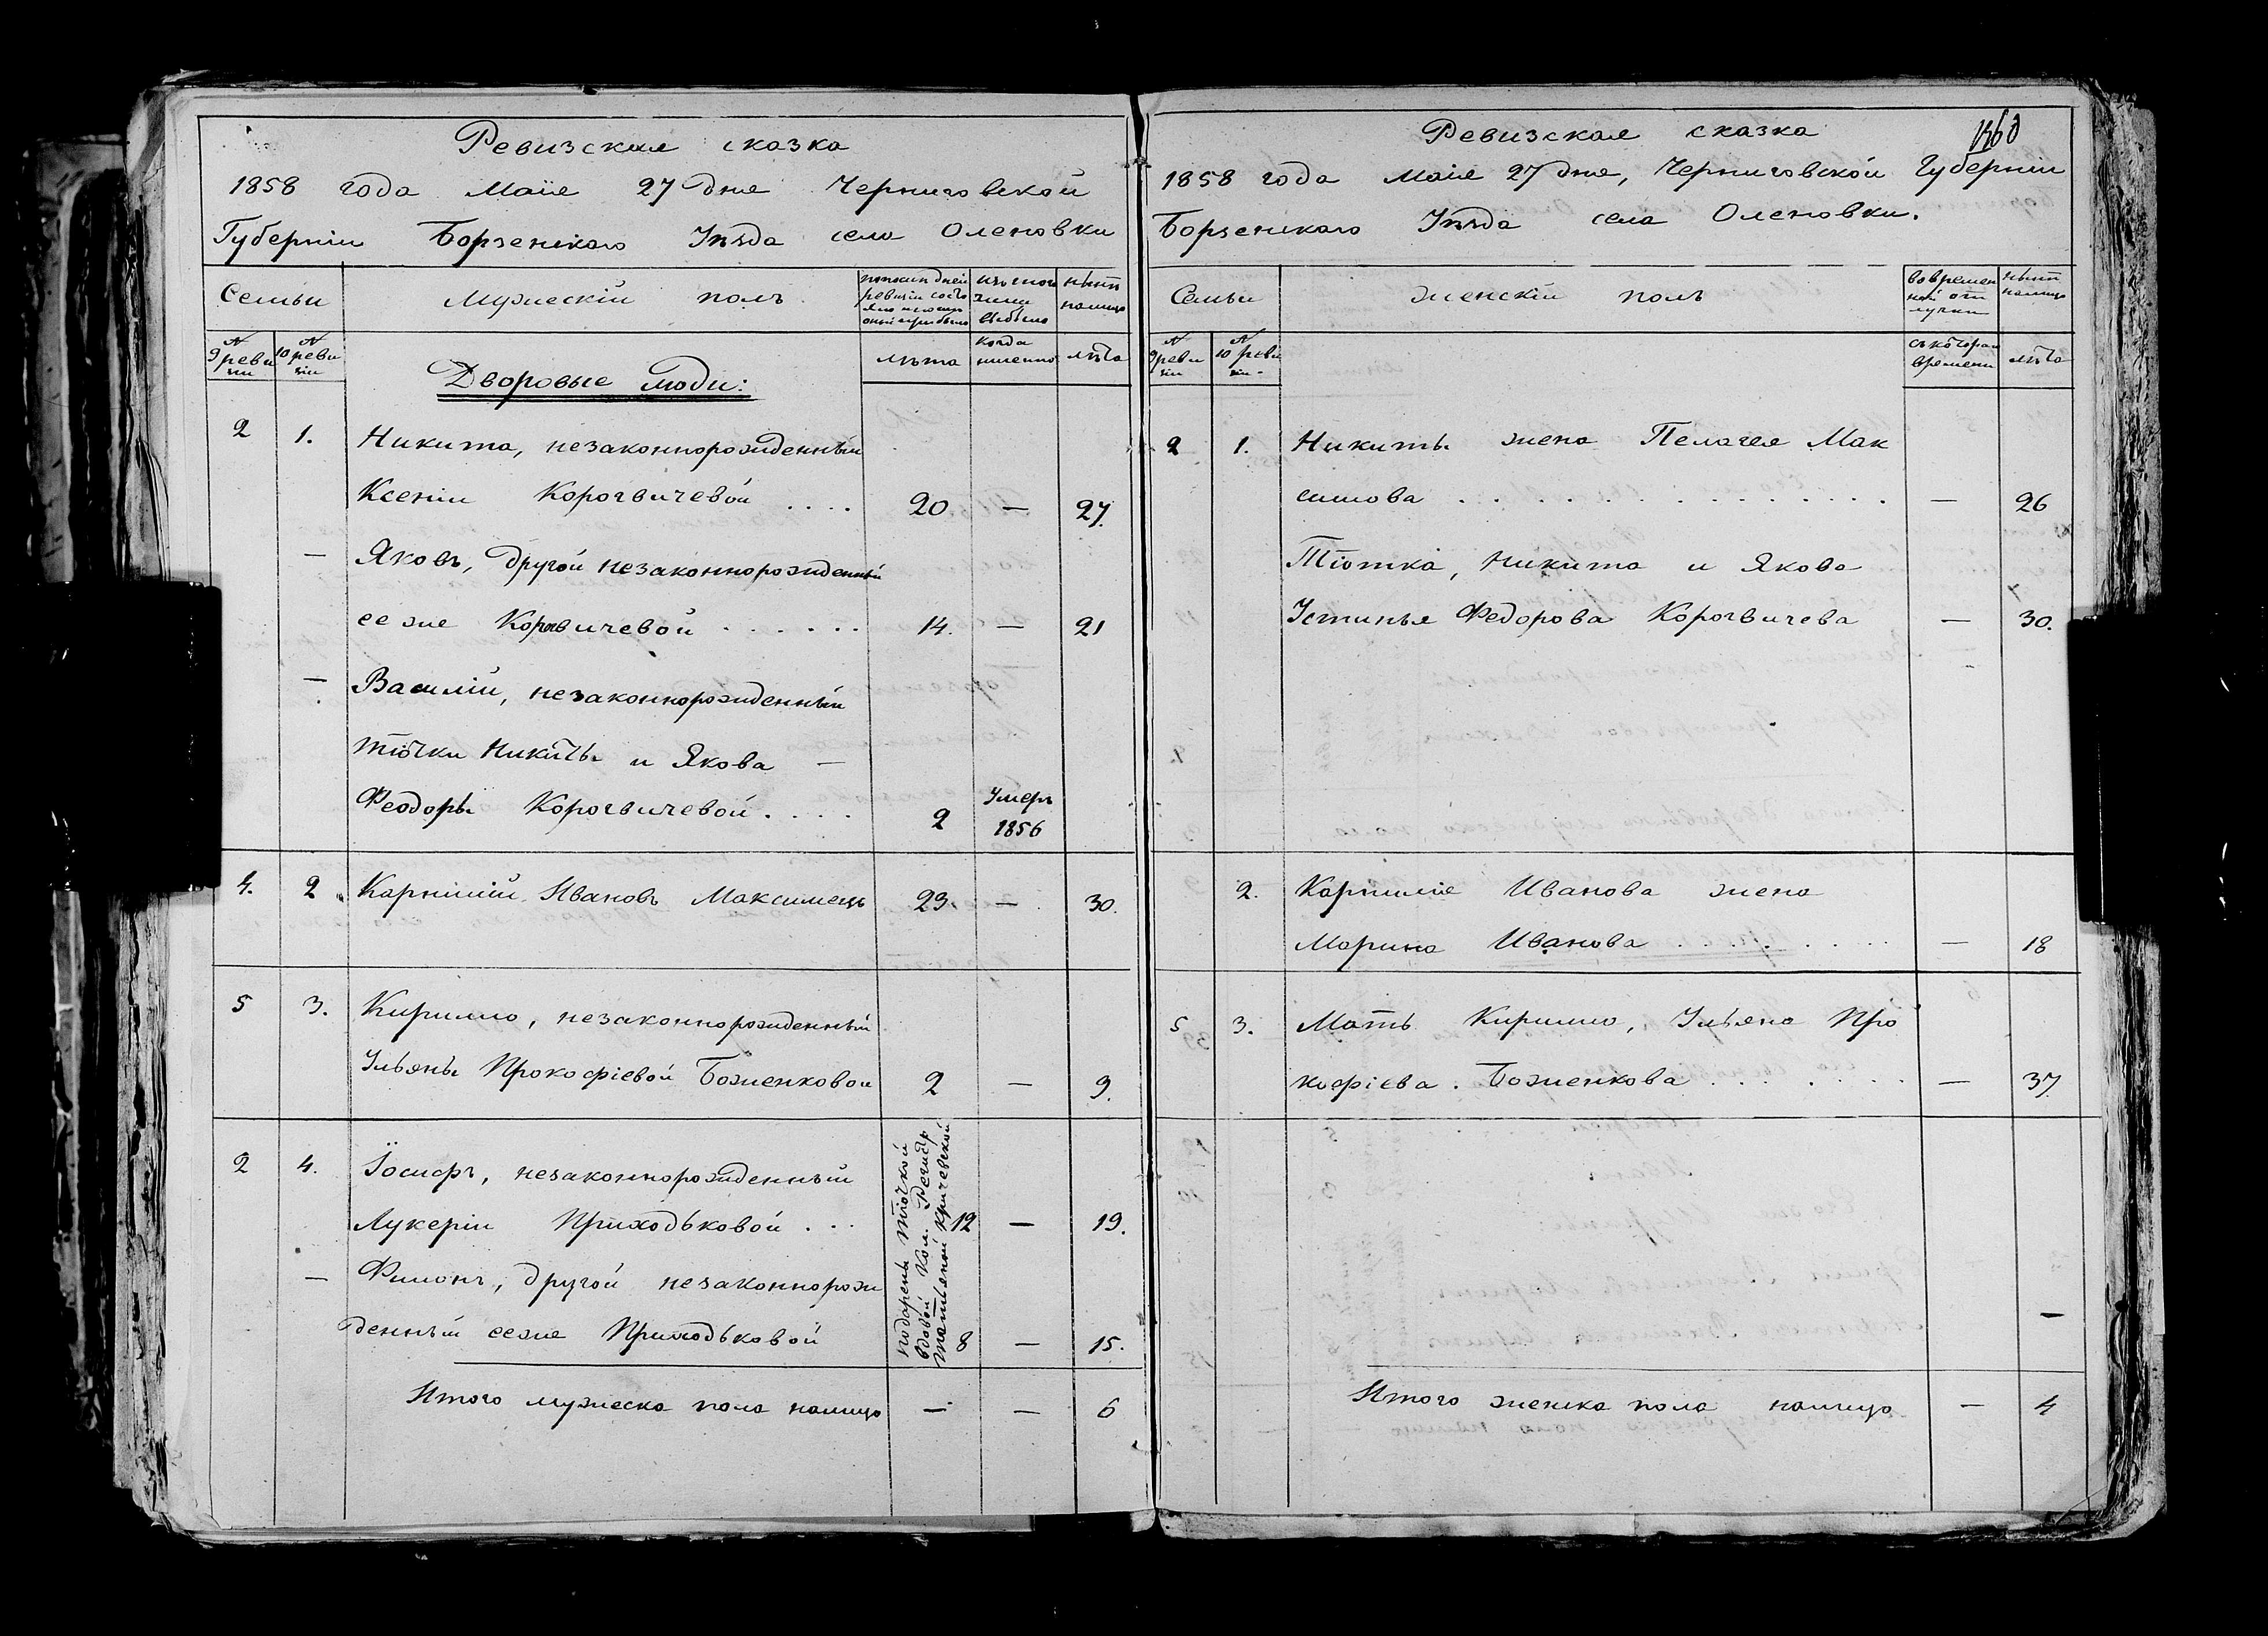 Ревизская сказка
1858 года Маія 27 дня Черниговской
Губерніи Борзенскаго Уѣзда села Оленовки
Семьи
Мужескій полъ
ревизіи
выбыло
нынѣ
налицо
№
9 реви
зіи
№
10 реви
зіи
лѣта
когда
именно
лѣта
Дворовые люди:
2 1. Никита, незаконнорожденный
Ксеніи Корогвичевой .... 20 — 27.
— Яковъ, другой незаконнорожденный
ее же Корогвичевой ...... 14. — 21
— Василій, незаконнорожденный
тіотки Никиты и Якова —
Феодоры Корогвичевой .... 2 Умеръ
1856
4. 2. Карнилій Ивановъ Максимецъ 23 — 30.
5 3. Кирилло, незаконнорожденный
Ульяны Прокофіевой Боженковой 2 — 9.
2 4. Іосифъ, незаконнорожденный
Лукеріи Приходьковой ... 12 — 19.
— Филонъ, другой незаконнорож
денный ее же Приходьковой 8 — 15.
подарены тіоткой
вдовой Кол. Регистр
Татьяной Кричевской
Итого мужеска пола налицо — — 6
1360
Ревизская сказка
1858 года Маія 27 дня, Черниговской Губерніи
Борзенскаго Уѣзда села Оленовки.
Семьи
женскій полъ
во времен
ной от
лучки
нынѣ
налицо
№
9 реви
зіи
№
10 реви
зіи.
съ котораго
времени
лѣта
2 1. Никиты жена Пелагея Мак
симова ............... — 26
Тіотка, Никита и Якова
Устинья Федорова Корогвичева — 30.
2. Карнилія Иванова жена
Марина Иванова ........ — 18
5 3. Мать Кирилло, Ульяна Про
кофіева. Боженкова ....... — 37
—
Итого женска пола налицо — 4